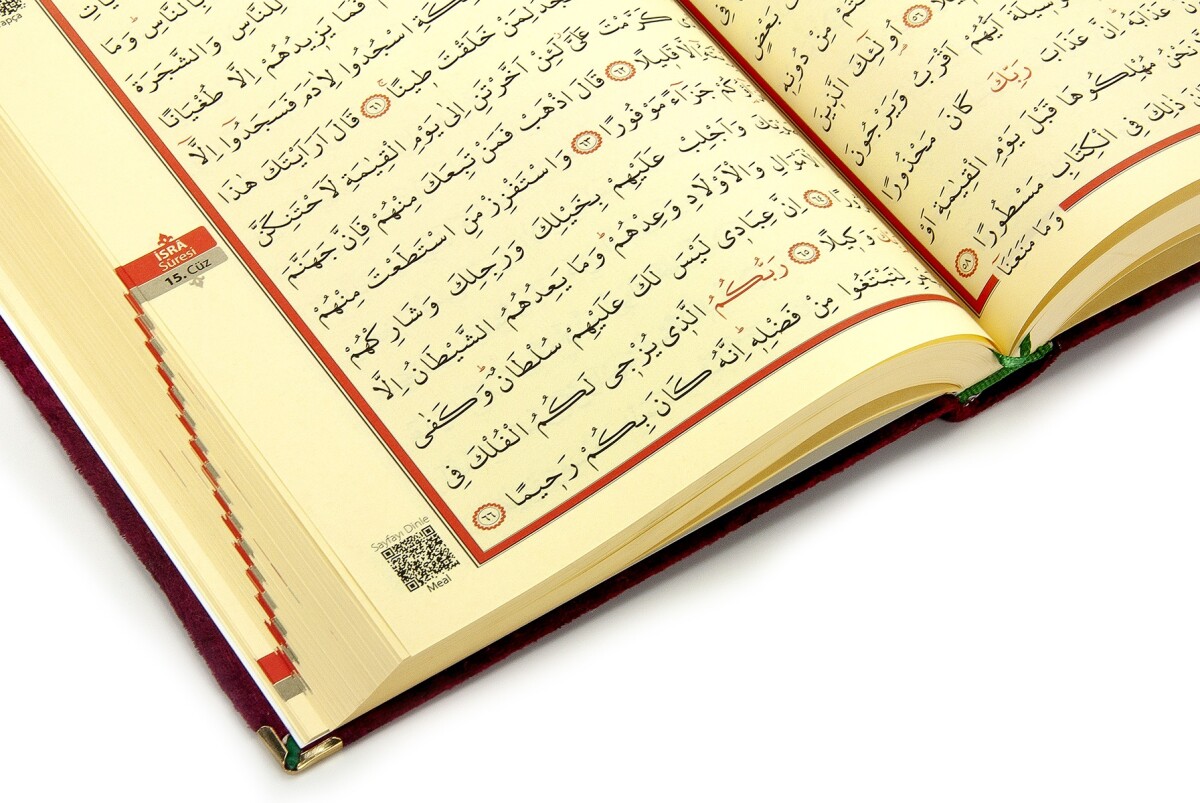 بَعْضٍ
مِنْ دُونِهِ
٥٦ اُولٰٓئِكَ الَّذِينَ
اَيُّهُمْ اَقْرَبُ وَيَرْجُونَ
عَذَابَهُ اِنَّ عَذَابَ رَبِّكَ كَانَ مَحْذُورًا
نَحْنُ مُهْلِكُوهَا قَبْلَ يَوْمِ الْقِيٰمَةِ اَوْ
ذٰلِكَ فِى الْكِتَابِ مَسْطُورًا
٥٨ وَمَا مَنَعَنَا
بِالنَّاسِ وَمَا
لِلنَّاسِ وَالشَّجَرَةَ
فَمَا يَزِيدُهُمْ اِلَّا طُغْيَانًا
اسْجُدُوا لِاٰدَمَ فَسَجَدُٓوا اِلَّٓا
لِمَنْ خَلَقْتَ طِينًا ٦١ قَالَ اَرَاَيْتَكَ هٰذَا
كَرَّمْتَ عَلَىَّ لَئِنْ اَخَّرْتَنِ اِلٰى يَوْمِ الْقِيٰمَةِ لَاَحْتَنِكَنَّ
اِلَّا قَلِيلًا ٦٢ قَالَ اذْهَبْ فَمَنْ تَبِعَكَ مِنْهُمْ فَاِنَّ جَهَنَّمَ
جَزَٓاءً مَوْفُورًا ٦٣ وَاسْتَفْزِزْ مَنِ اسْتَطَعْتَ مِنْهُمْ
وَاَجْلِبْ عَلَيْهِمْ بِخَيْلِكَ وَرَجِلِكَ وَشَارِكْهُمْ
وَالْاَوْلَادِ وَعِدْهُمْ وَمَا يَعِدُهُمُ الشَّيْطَانُ اِلَّا
٦٤ اِنَّ عِبَادِى لَيْسَ لَكَ عَلَيْهِمْ سُلْطَانٌ وَكَفٰى
وَكِيلًا ٦٥ رَبُّكُمُ الَّذِى يُزْجِى لَكُمُ الْفُلْكَ فِى
لِتَبْتَغُوا مِنْ فَضْلِهِ اِنَّهُ كَانَ بِكُمْ رَحِيمًا ٦٦
İSRÂ
Sûresi
15. Cüz
Sayfayı Dinle
Meal